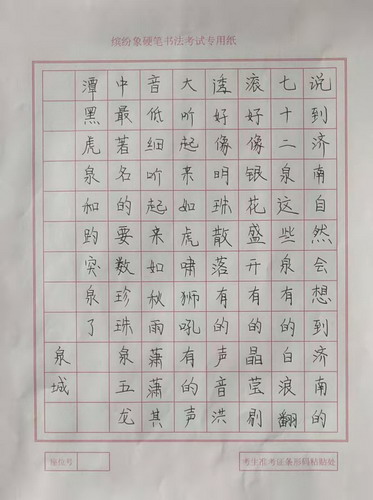 缤纷象硬笔书法考试专用纸
说到济南自然会想到济南的
七十二泉这些泉有的白浪翻
滚好像银花盛开有的晶莹剔
透好像明珠散落有的声音洪
大听起来如虎啸狮吼有的声
音低细听起来如秋雨萧萧其
中最著名的要数珍珠泉五龙
潭黑虎泉和趵突泉了
泉城
座位号
考生准考证条形码粘贴处